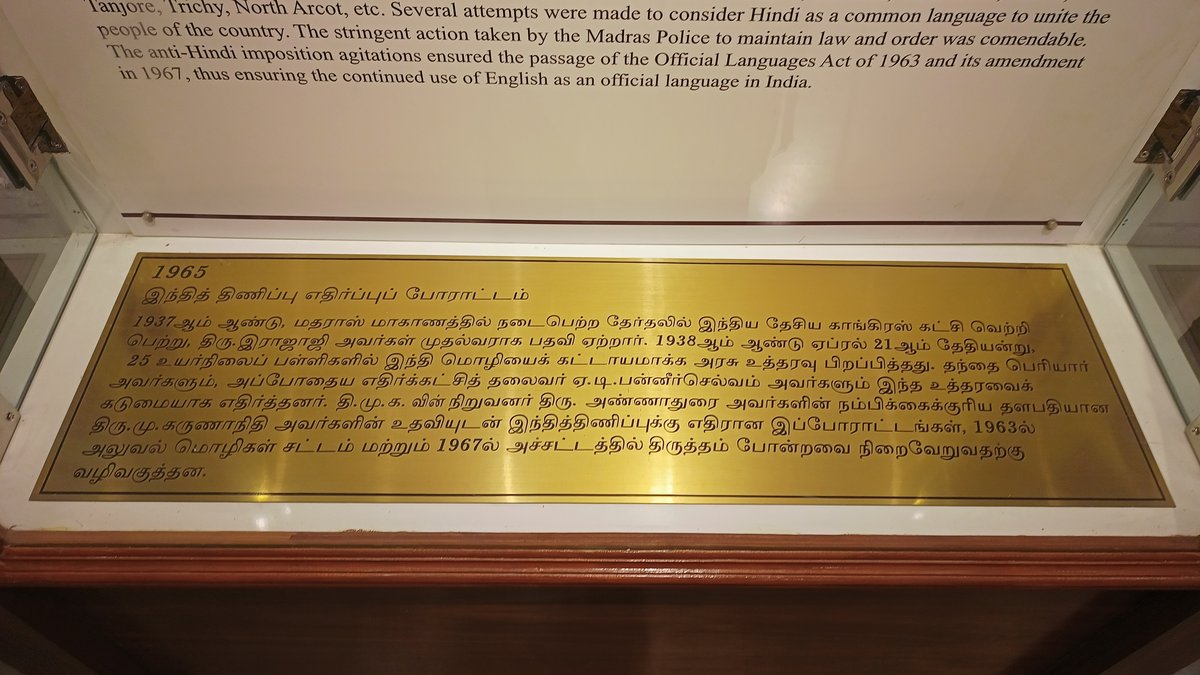 Tanjore, Trichy, North Arcot, etc. Several attempts were made to consider Hindi as a common language to unite the
people of the country. The stringent action taken by the Madras Police to maintain law and order was comendable.
The anti-Hindi imposition agitations ensured the passage of the Official Languages Act of 1963 and its amendment
in 1967, thus ensuring the continued use of English as an official language in India.
1965
இந்தித் திணிப்பு எதிர்ப்புப் போராட்டம்
1937ஆம் ஆண்டு, மதராஸ் மாகாணத்தில் நடைபெற்ற தேர்தலில் இந்திய தேசிய காங்கிரஸ் கட்சி வெற்றி
பெற்று, திரு.இராஜாஜி அவர்கள் முதல்வராக பதவி ஏற்றார். 1938ஆம் ஆண்டு ஏப்ரல் 21ஆம் தேதியன்று,
25 உயர்நிலைப் பள்ளிகளில் இந்தி மொழியைக் கட்டாயமாக்க அரசு உத்தரவு பிறப்பித்தது. தந்தை பெரியார்
அவர்களும், அப்போதைய எதிர்க்கட்சித் தலைவர் ஏ.டி.பன்னீர்செல்வம் அவர்களும் இந்த உத்தரவைக்
கடுமையாக எதிர்த்தனர். தி.மு.க. வின் நிறுவனர் திரு. அண்ணாதுரை அவர்களின் நம்பிக்கைக்குரிய தளபதியான
திரு.மு.கருணாநிதி அவர்களின் உதவியுடன் இந்தித்திணிப்புக்கு எதிரான இப்போராட்டங்கள், 1963ல்
அலுவல் மொழிகள் சட்டம் மற்றும் 1967ல் அச்சட்டத்தில் திருத்தம் போன்றவை நிறைவேறுவதற்கு
வழிவகுத்தன.